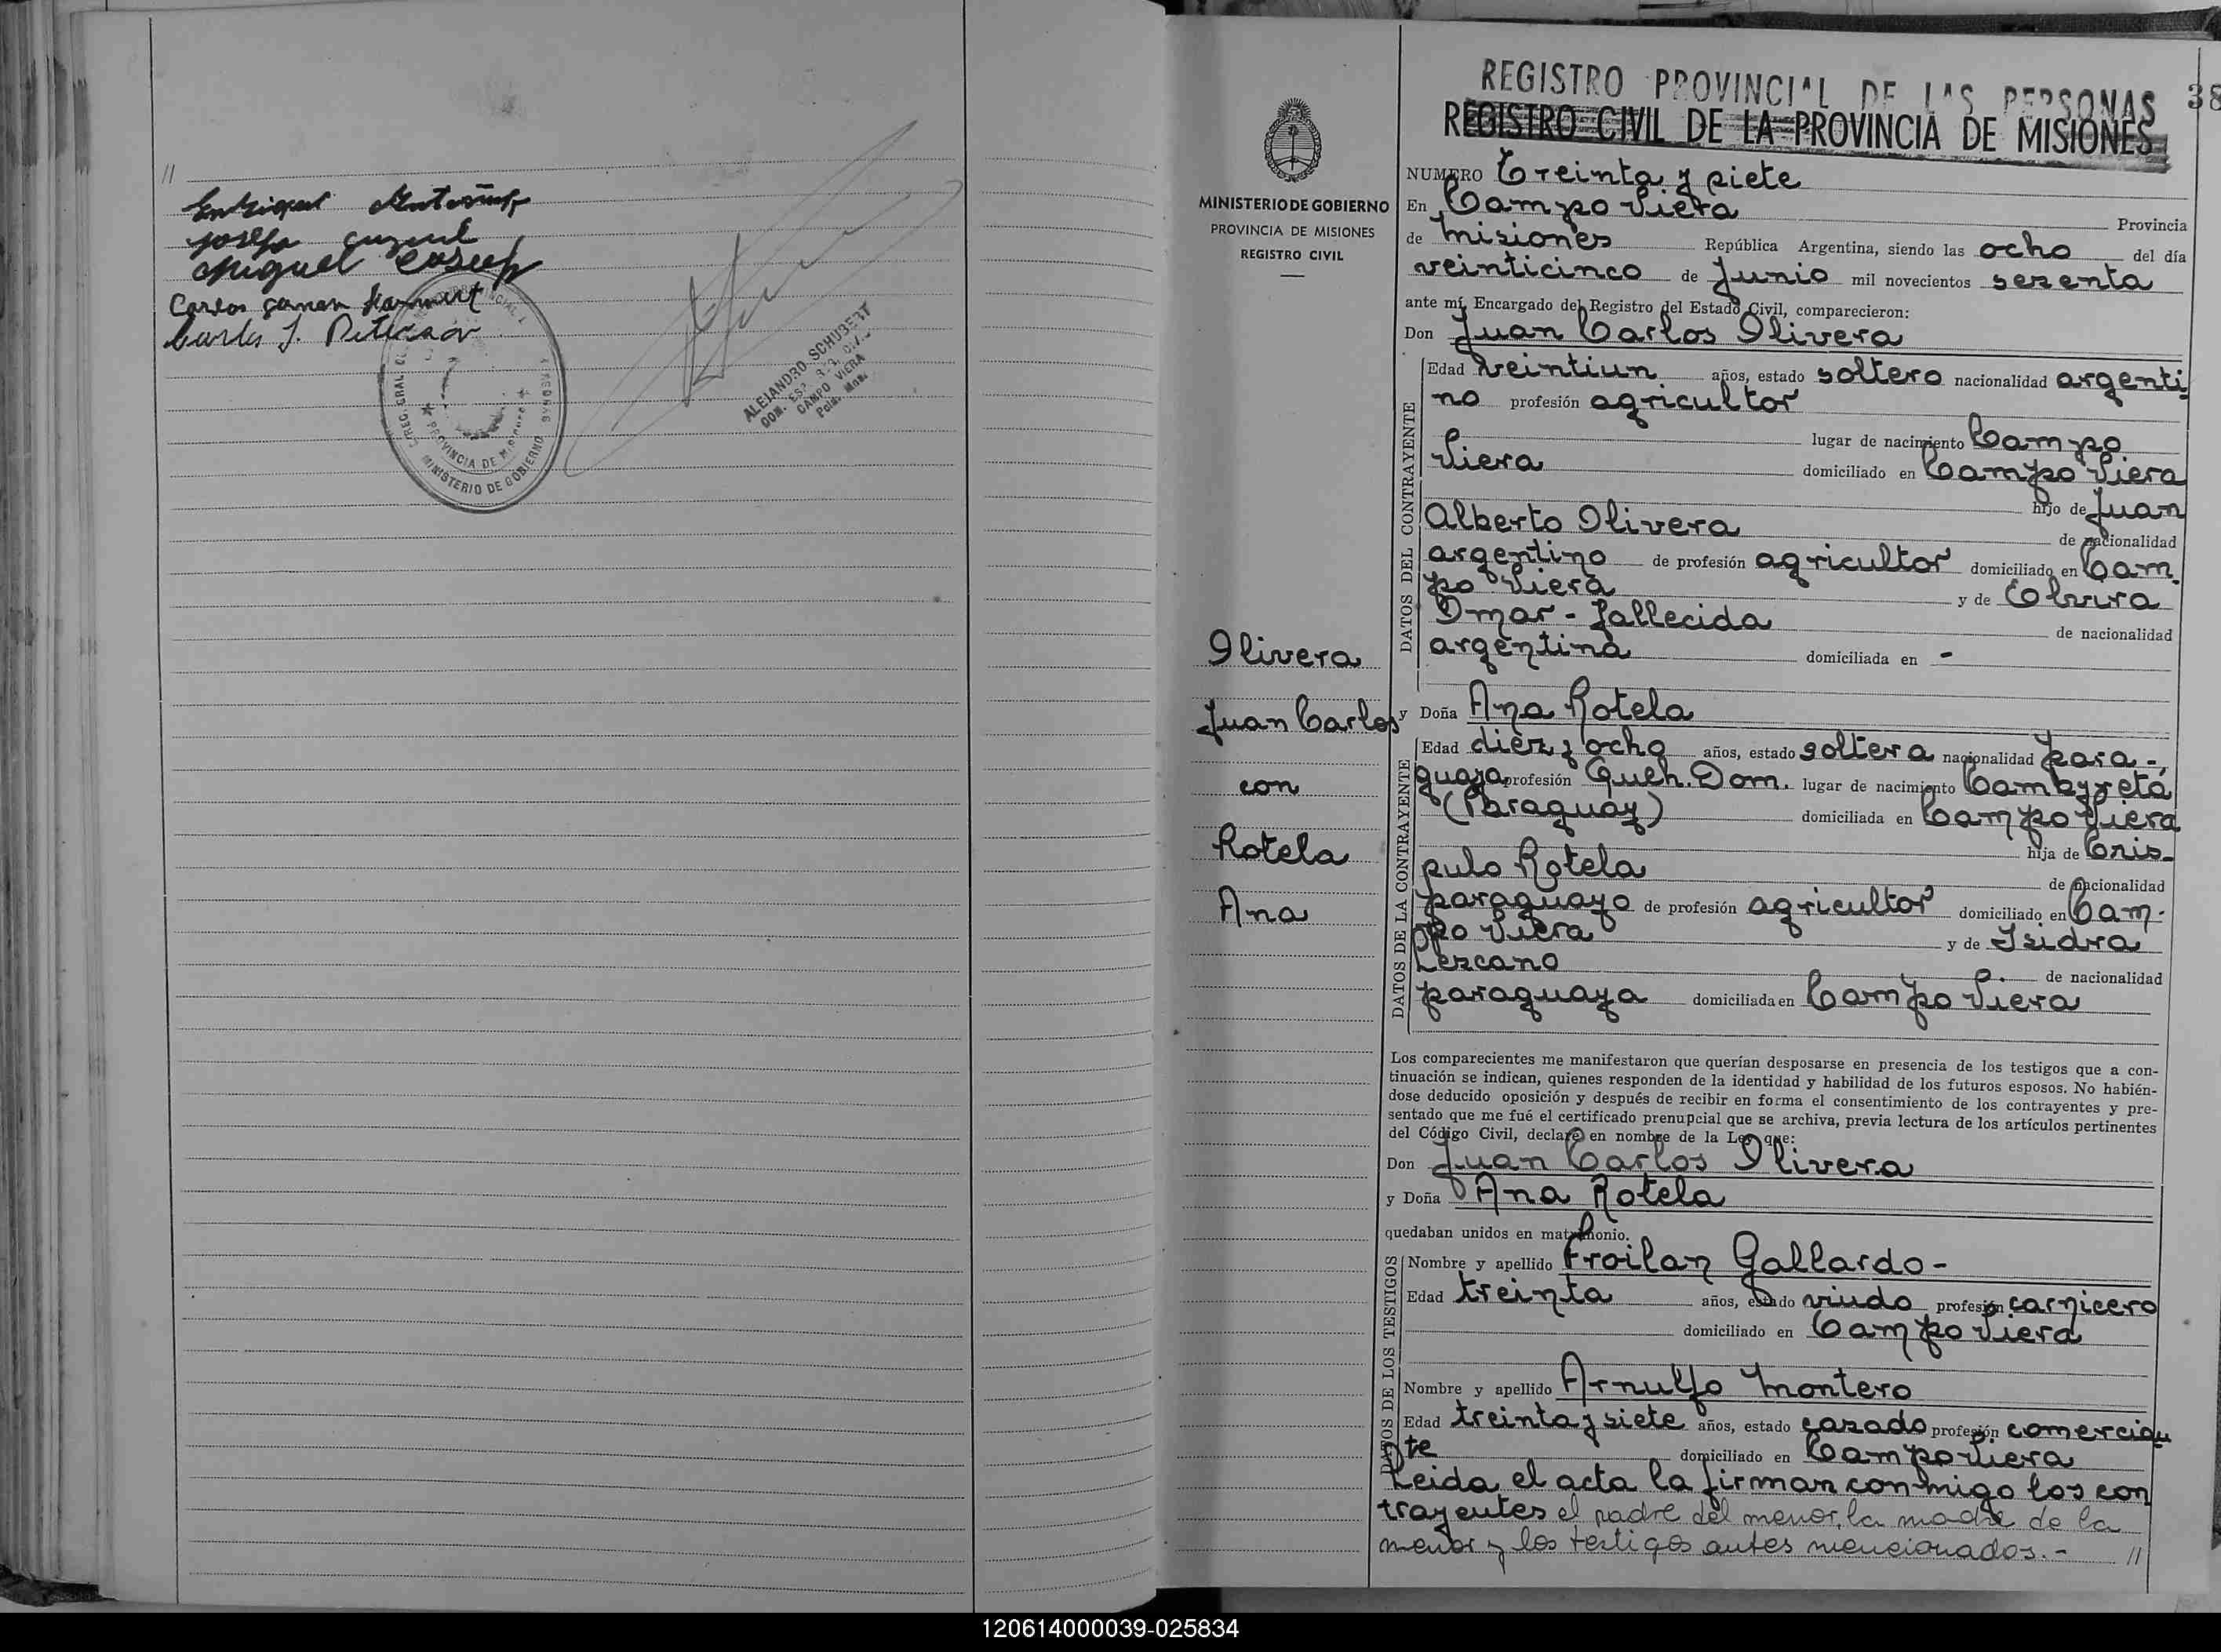 //
Miguel
Carlos German
Carlos J.
MINISTERIO DE GOBIERNO
PROVINCIA DE MISIONES
ALEJANDRO SCHUBERT
CAMPO VIERA
REGISTRO PROVINCIAL DE LAS PERSONAS
38
REGISTRO CIVIL DE LA PROVINCIA DE MISIONES
MINISTERIO DE GOBIERNO
PROVINCIA DE MISIONES
REGISTRO CIVIL
Olivera
Juan Carlos
con
Rotela
Ana
NUMERO Treinta y siete
En Campo Viera Provincia
de Misiones República Argentina, siendo las ocho del día
veinticinco de Junio mil novecientos sesenta
ante mí, Encargado del Registro del Estado Civil, comparecieron:
Don Juan Carlos Olivera
DATOS DEL CONTRAYENTE
Edad veintiun años, estado soltero nacionalidad argenti
no profesión agricultor
lugar de nacimiento Campo
Viera domiciliado en Campo Viera
hijo de Juan
Alberto Olivera de nacionalidad
argentino de profesión agricultor domiciliado en Cam-
po Viera y de
Omar - fallecida de nacionalidad
argentina domiciliada en -
y Doña Ana Rotela
DATOS DE LA CONTRAYENTE
Edad diez y ocho años, estado soltera nacionalidad para-
guaya profesión Queh. Dom. lugar de nacimiento Cambyretá
(Paraguay) domiciliada en Campo Viera
hija de Cris-
pulo Rotela de nacionalidad
paraguayo de profesión agricultor domiciliado en Cam-
po Viera y de Isidra
Lezcano de nacionalidad
paraguaya domiciliada en Campo Viera
Los comparecientes me manifestaron que querían desposarse en presencia de los testigos que a con-
tinuación se indican, quienes responden de la identidad y habilidad de los futuros esposos. No habién-
dose deducido oposición y después de recibir en forma el consentimiento de los contrayentes y pre-
sentado que me fué el certificado prenupcial que se archiva, previa lectura de los artículos pertinentes
del Código Civil, declaré en nombre de la Ley que:
Don Juan Carlos Olivera
y Doña Ana Rotela
quedaban unidos en matrimonio.
DATOS DE LOS TESTIGOS
Nombre y apellido Froilan Gallardo-
Edad treinta años, estado viudo profesión carnicero
domiciliado en Campo Viera
Nombre y apellido Arnulfo Montero
Edad treinta y siete años, estado casado profesión comercian
te domiciliado en Campo Viera
Leida el acta la firman conmigo los con
trayentes el padre del menor, la madre de la
menor y los testigos antes mencionados.- //
120614000039-025834